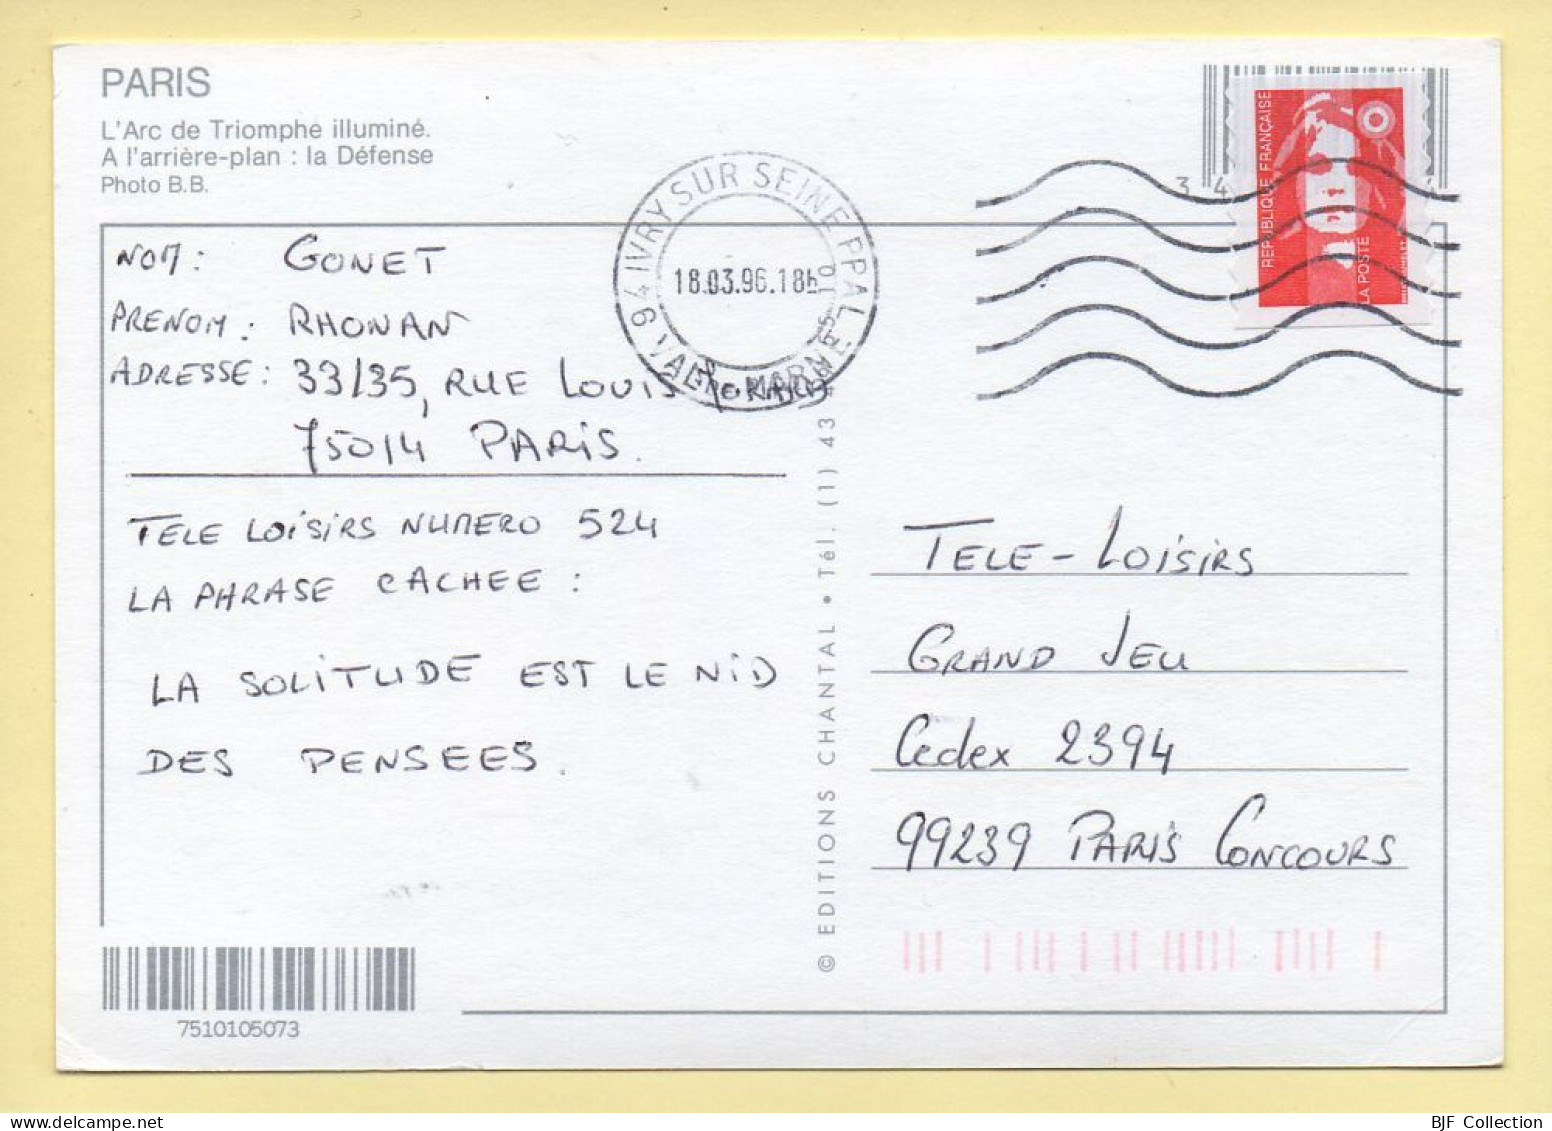 PARIS
L'Arc de Triomphe illuminé.
A l'arrière-plan : la Défense
Photo B.B.
REPUBLIQUE FRANÇAISE
LA POSTE
3 4
94 IVRY SUR SEINE PPAL
18.03.96.18h
VAL DE MARNE
NOM : GONET
PRENOM : RHONAN
ADRESSE : 33/35, RUE LOUIS MORARD
75014 PARIS.
TELE LOISIRS NUMERO 524
LA PHRASE CACHEE :
LA SOLITUDE EST LE NID
DES PENSEES.
© EDITIONS CHANTAL • Tél. (1) 43
TELE-LOISIRS
GRAND JEU
Cedex 2394
99239 PARIS CONCOURS
7510105073
BJF Collection